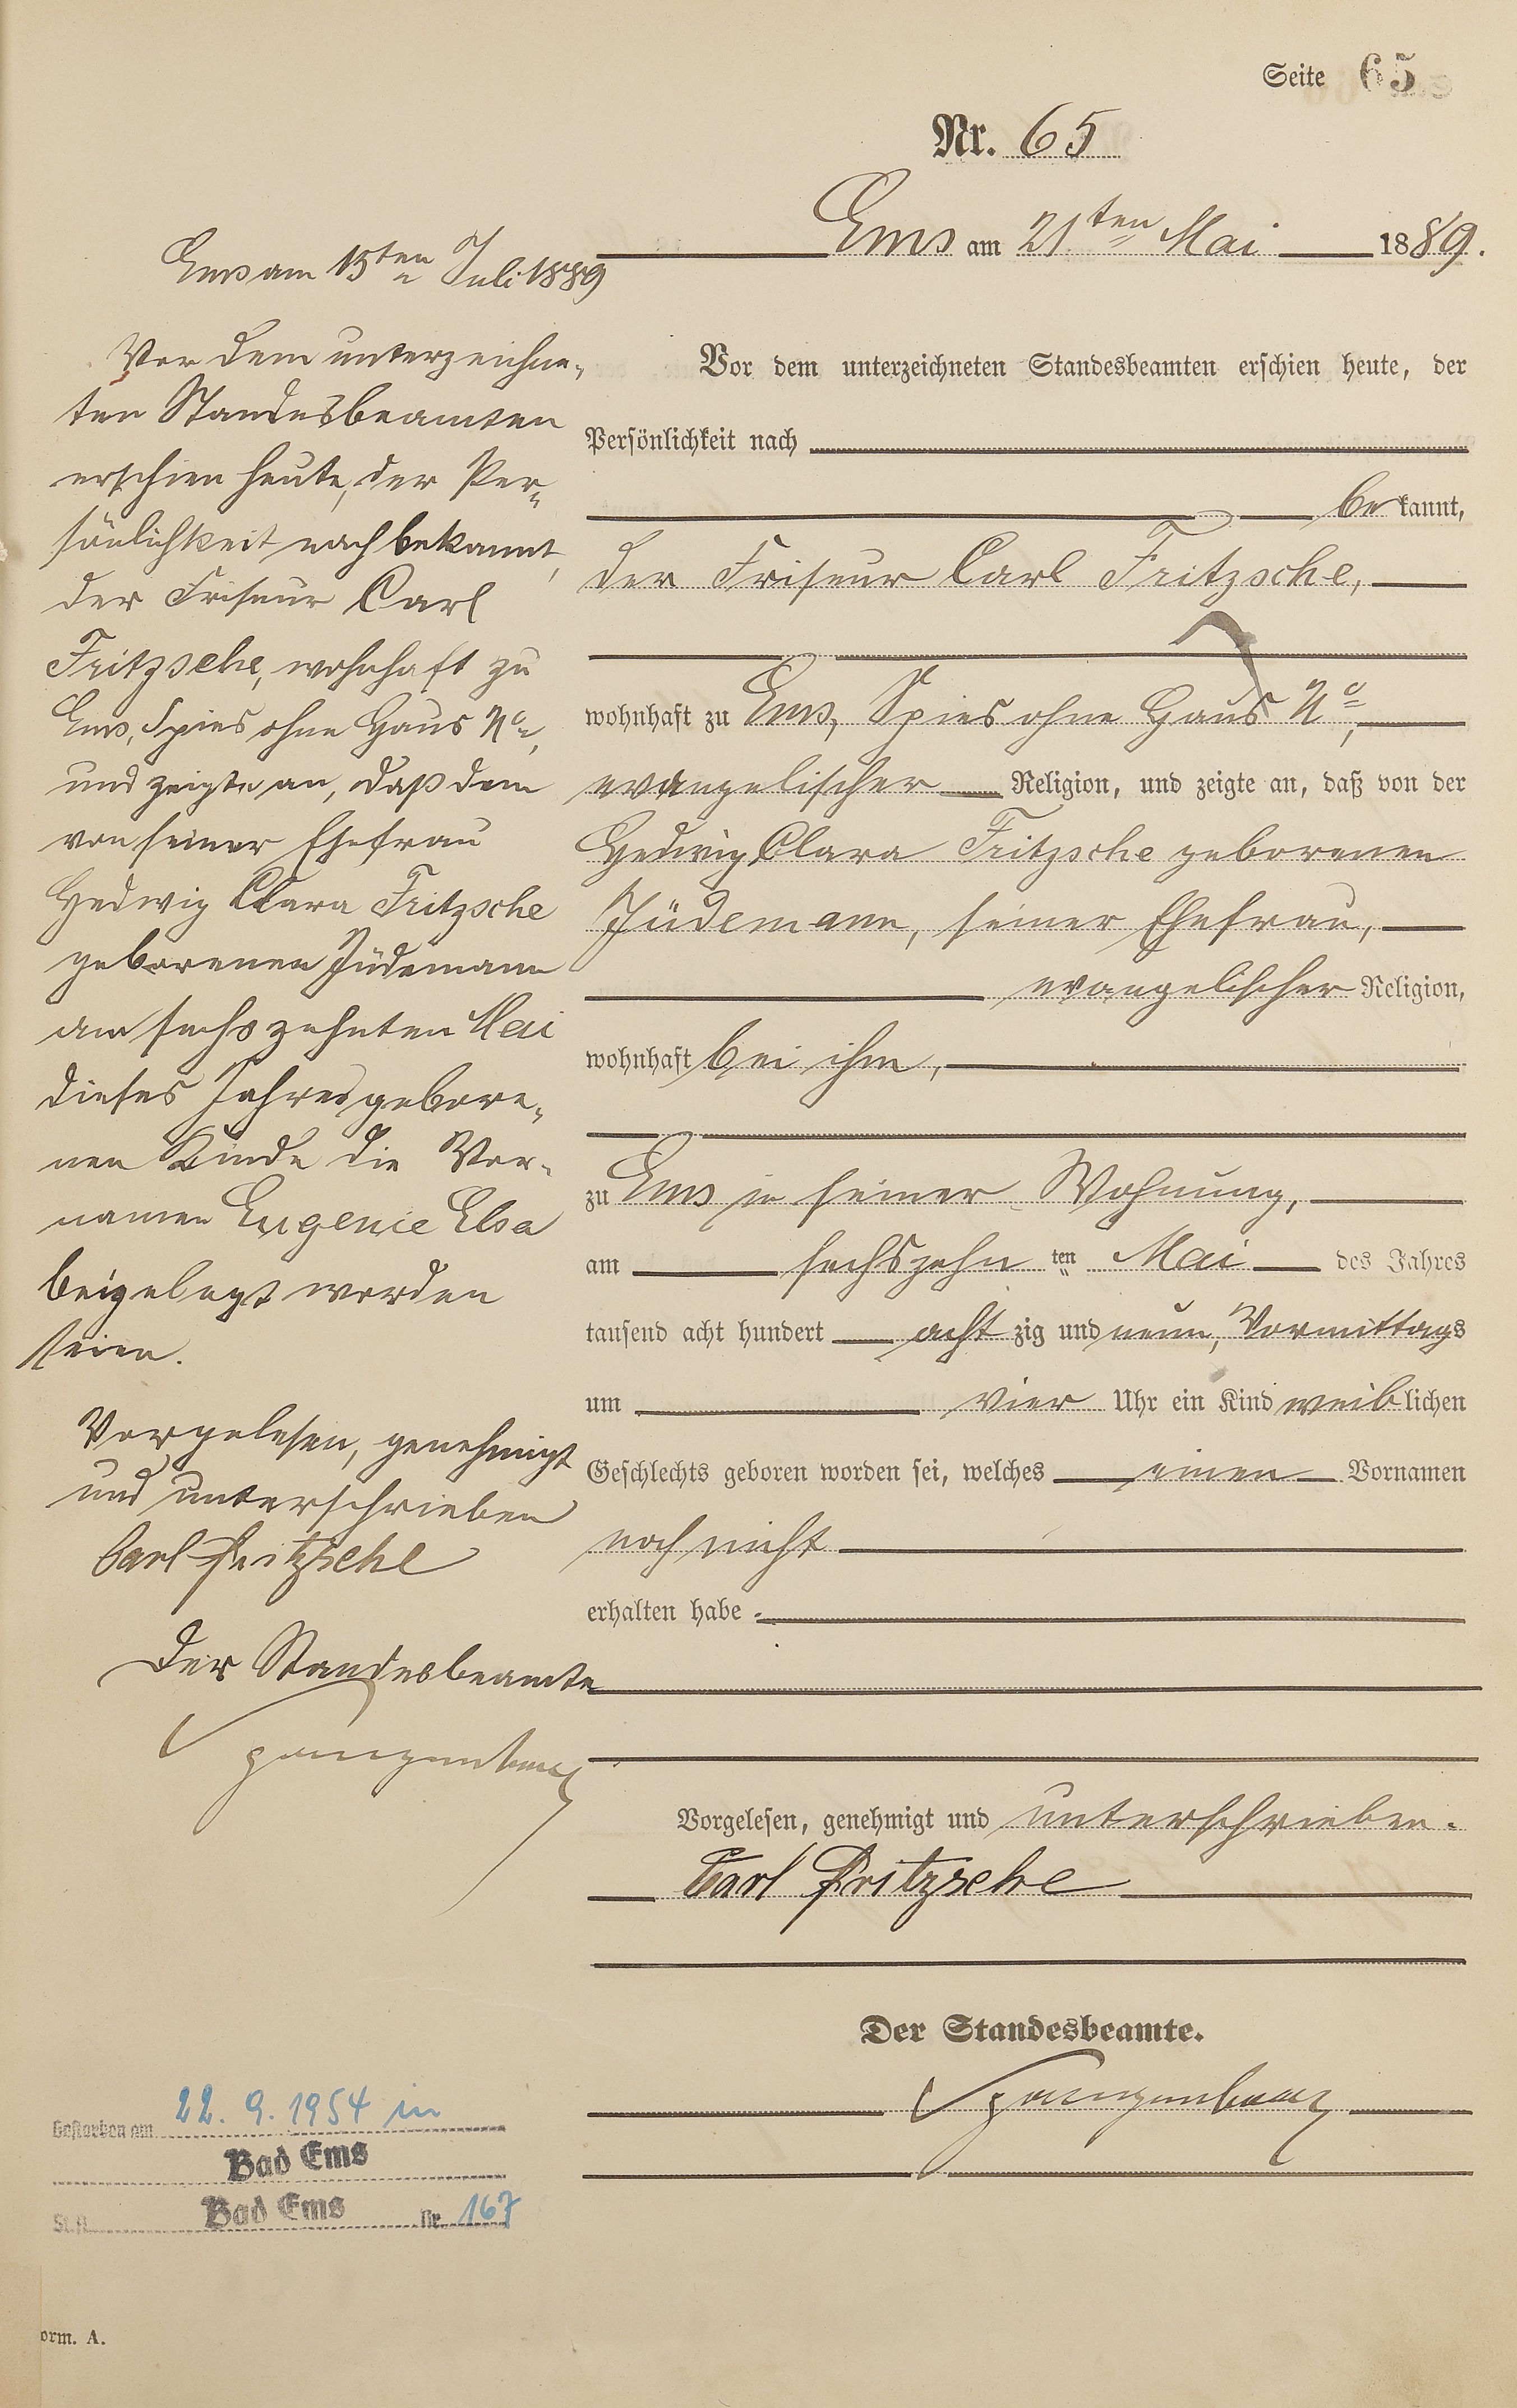 Seite 65
Nr. 65
Ems am 21ten Mai 1889.
Vor dem unterzeichneten Standesbeamten erschien heute, der
Persönlichkeit nach
bekannt,
der Friseur Carl Fritzsche,
wohnhaft zu Ems, Spies ohne Haus No,
evangelischer Religion, und zeigte an, daß von der
Hedwig Clara Fritzsche geborenen
Jüdemann, seiner Ehefrau,
evangelischer Religion,
wohnhaft bei ihm,
zu Ems in seiner Wohnung,
am sechszehn ten Mai des Jahres
tausend acht hundert acht zig und neun, Vormittags
um vier Uhr ein Kind weiblichen
Geschlechts geboren worden sei, welches einen Vornamen
noch nicht
erhalten habe.
Vorgelesen, genehmigt und unterschrieben.
Carl Fritzsche
Der Standesbeamte.
Spangenberg
Ems am 15ten Juli 1889
Vor dem unterzeichne-
ten Standesbeamten
erschien heute, der Per-
sönlichkeit nach bekannt,
der Friseur Carl
Fritzsche, wohnhaft zu
Ems, Spies ohne Haus No,
und zeigte an, daß dem
von seiner Ehefrau
Hedwig Clara Fritzsche
geborenen Jüdemann
am sechszehnten Mai
dieses Jahres gebore-
nen Kinde die Vor-
namen Eugenie Elsa
beigelegt worden
seien.
Vorgelesen, genehmigt
und unterschrieben
Carl Fritzsche
Der Standesbeamte
Spangenberg
Gestorben am 22. 9. 1954 in
Bad Ems
St.A. Bad Ems Nr. 167
orm. A.